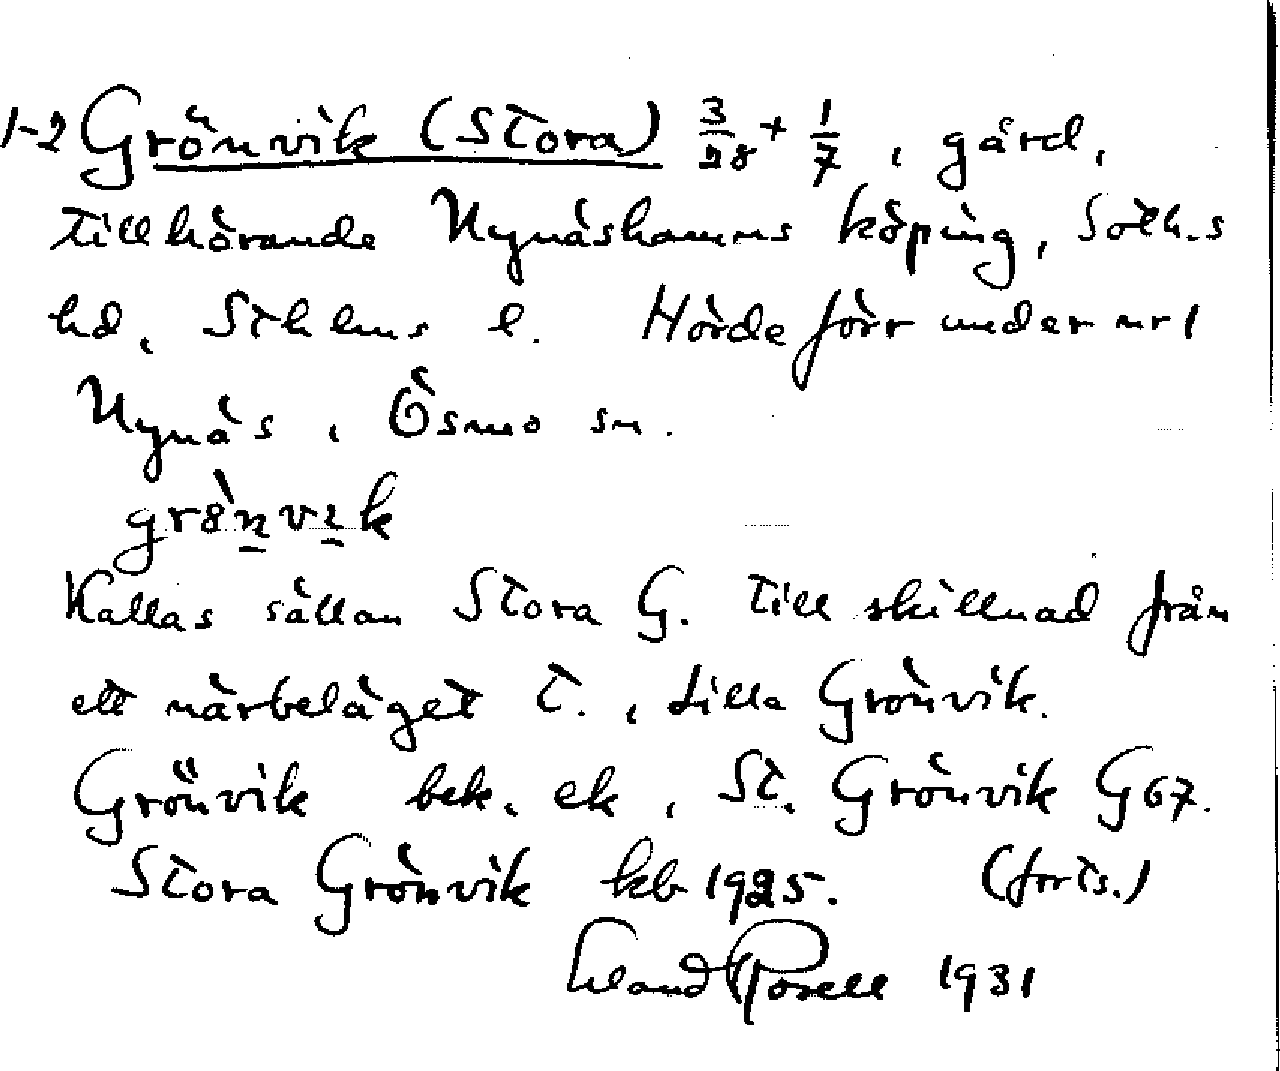 1-2 Grönvik (Stora) 3/28 + 1/7, gård,
tillhörande Nynäshamns köping, Soth.s
hd, Sthlms l. Hörde förr under nr 1
Nynäs, Ösmo sn.
grönvik
Kallas sällan Stora G. till skillnad från
ett närbeläget t., Lilla Grönvik.
Grönvik bek. ek, St. Grönvik G67.
Stora Grönvik kb 1925. (forts.)
Erland Rosell 1931